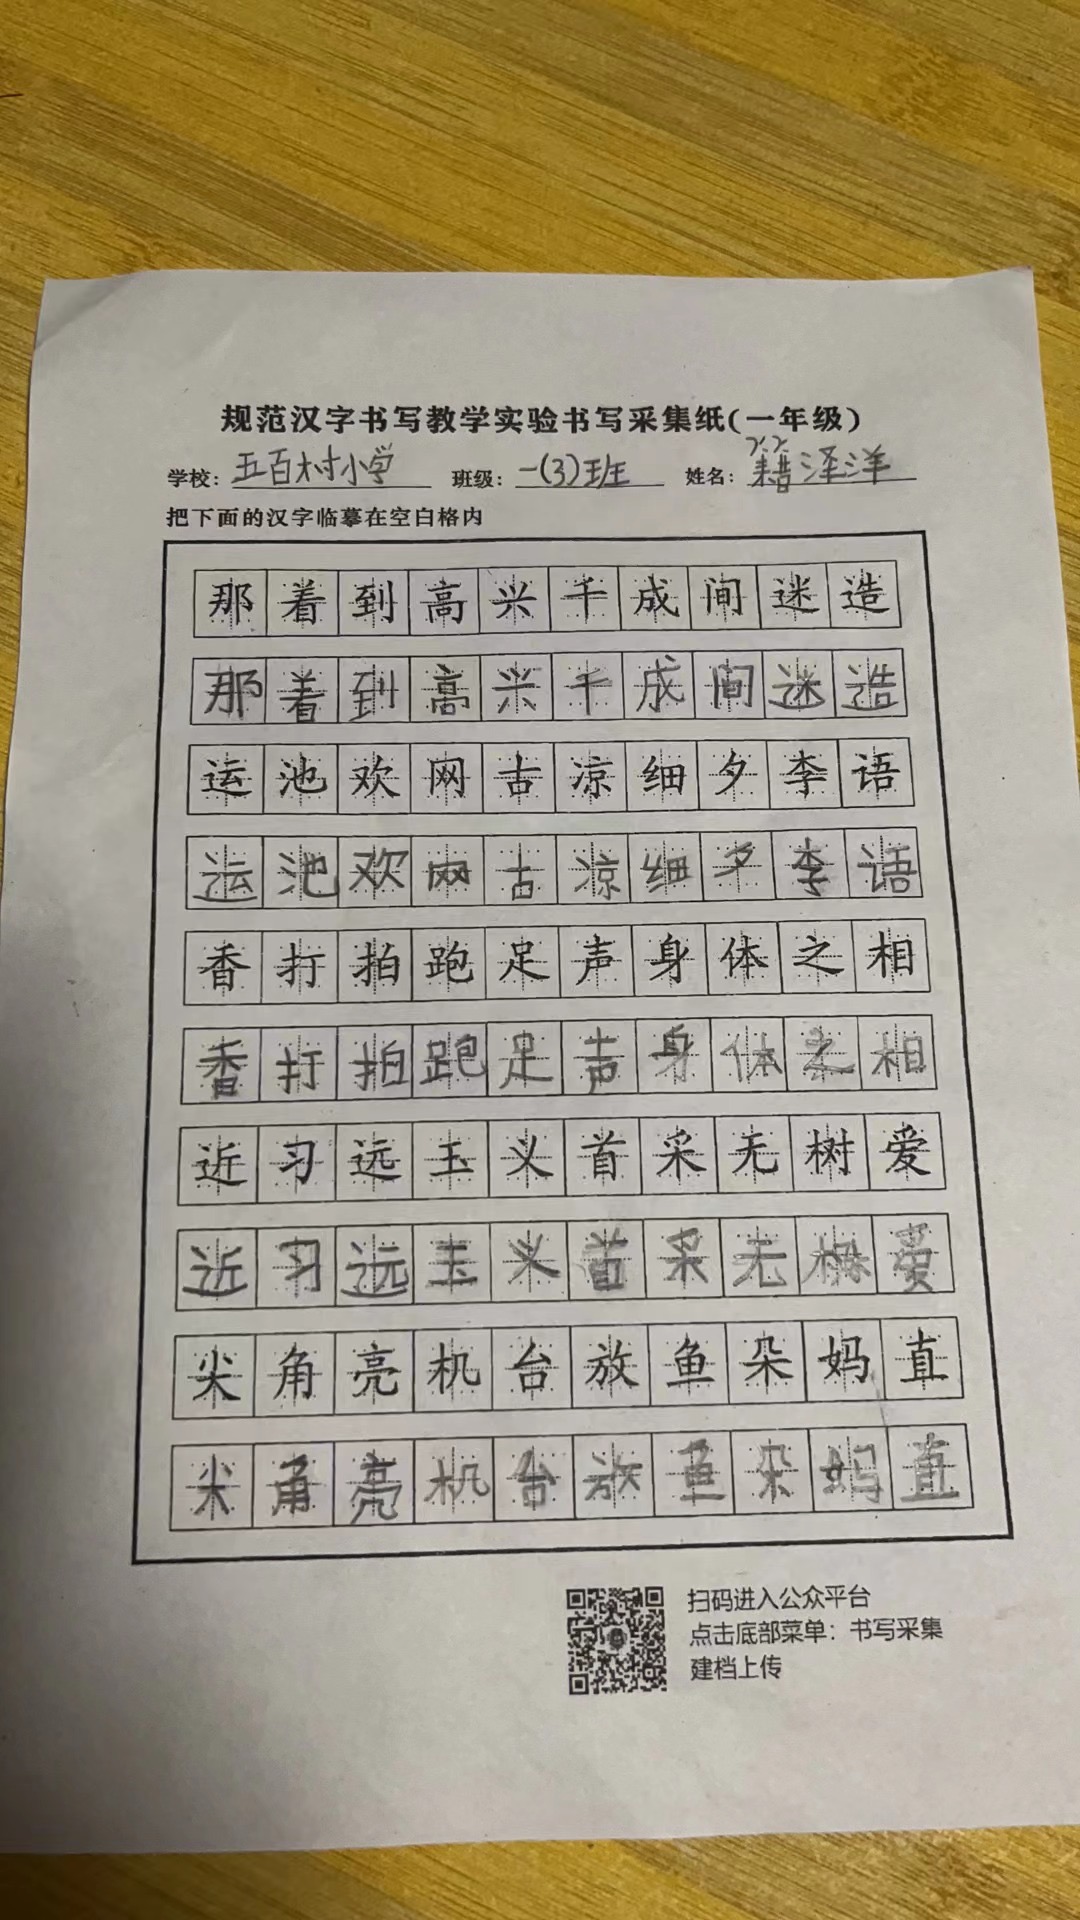 规范汉字书写教学实验书写采集纸(一年级)
学校: 五百村小学 班级: 一(3)班 姓名: 籍泽洋
把下面的汉字临摹在空白格内
那着到高兴千成间迷造
那着到高兴千成间迷造
运池欢网古凉细夕李语
运池欢网古凉细夕李语
香打拍跑足声身体之相
香打拍跑足声身体之相
近习远玉义首采无树爱
近习远玉义首采无树爱
尖角亮机台放鱼朵妈直
尖角亮机台放鱼朵妈直
扫码进入公众平台
点击底部菜单：书写采集
建档上传